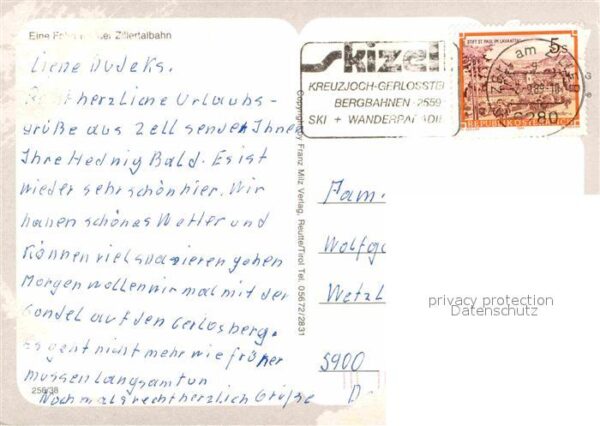 Eine Fahrt mit der Zillertalbahn
Liene Dudeks.
Recht herzliche Urlaubs-
grüße aus Zell senden Ihnen
Ihre Hednig Bald. Es ist
wieder sehr schön hier. Wir
haben schönes Wetter und
können viel spazieren gehen
Morgen wollen wir mal mit der
Gondel auf den Gerlosberg.
Es geht nicht mehr wie früher
müssen langsam tun
Nochmals recht herzlich Grüße
256/38
Copyright by Franz Milz Verlag, Reutte/Tirol Tel. 05672/2831
skizell
KREUZJOCH-GERLOSSTEIN
BERGBAHNEN 2559
SKI + WANDERPARADIES
STIFT ST. PAUL IM LAVANTTAL
5s
REPUBLIK ÖSTERREICH
am
6280
Fam.
Wolfga
Wetzl
5900
D-
privacy protection
Datenschutz